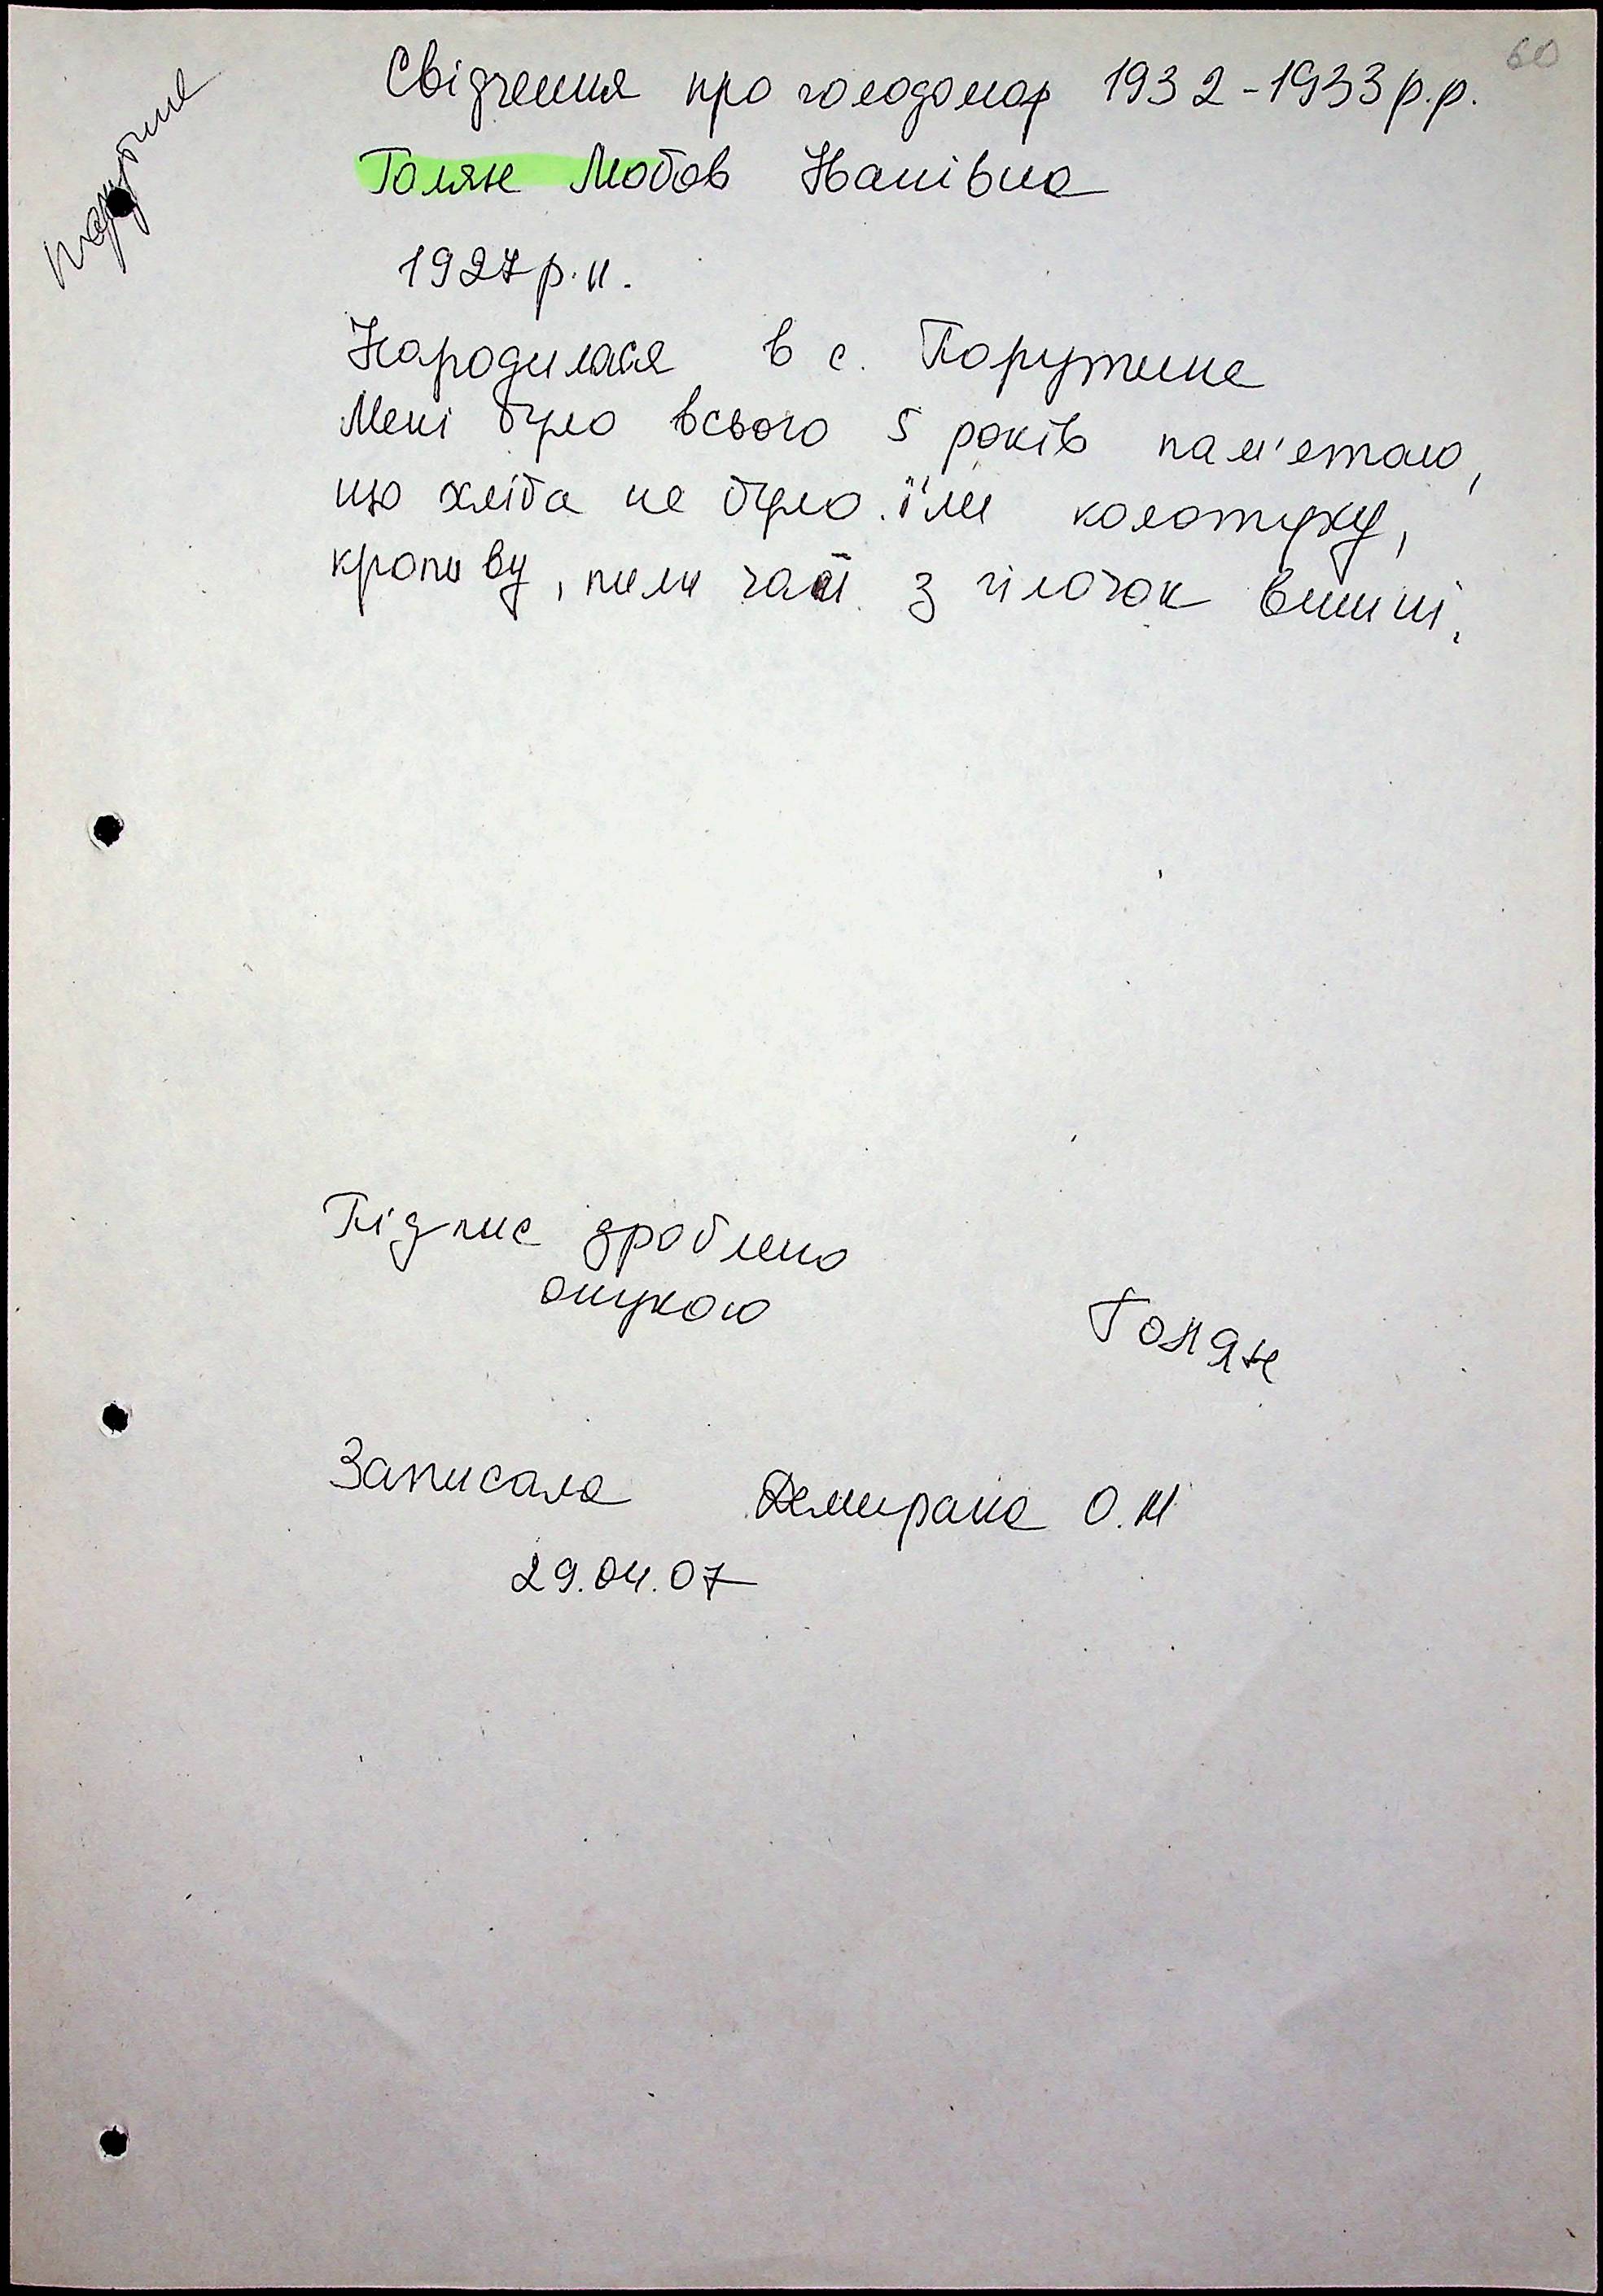 60
Парутине
Свідчення про голодомор 1932-1933 р.р.
Голян Любов Іванівна
1927 р.н.
Народилася в с. Парутине
Мені було всього 5 років пам'ятаю,
що хліба не було. їли колотуху,
кропиву, пили чай з гілочок вишні.
Підпис зроблено
онукою
Голян
Записала О.М
29.04.07